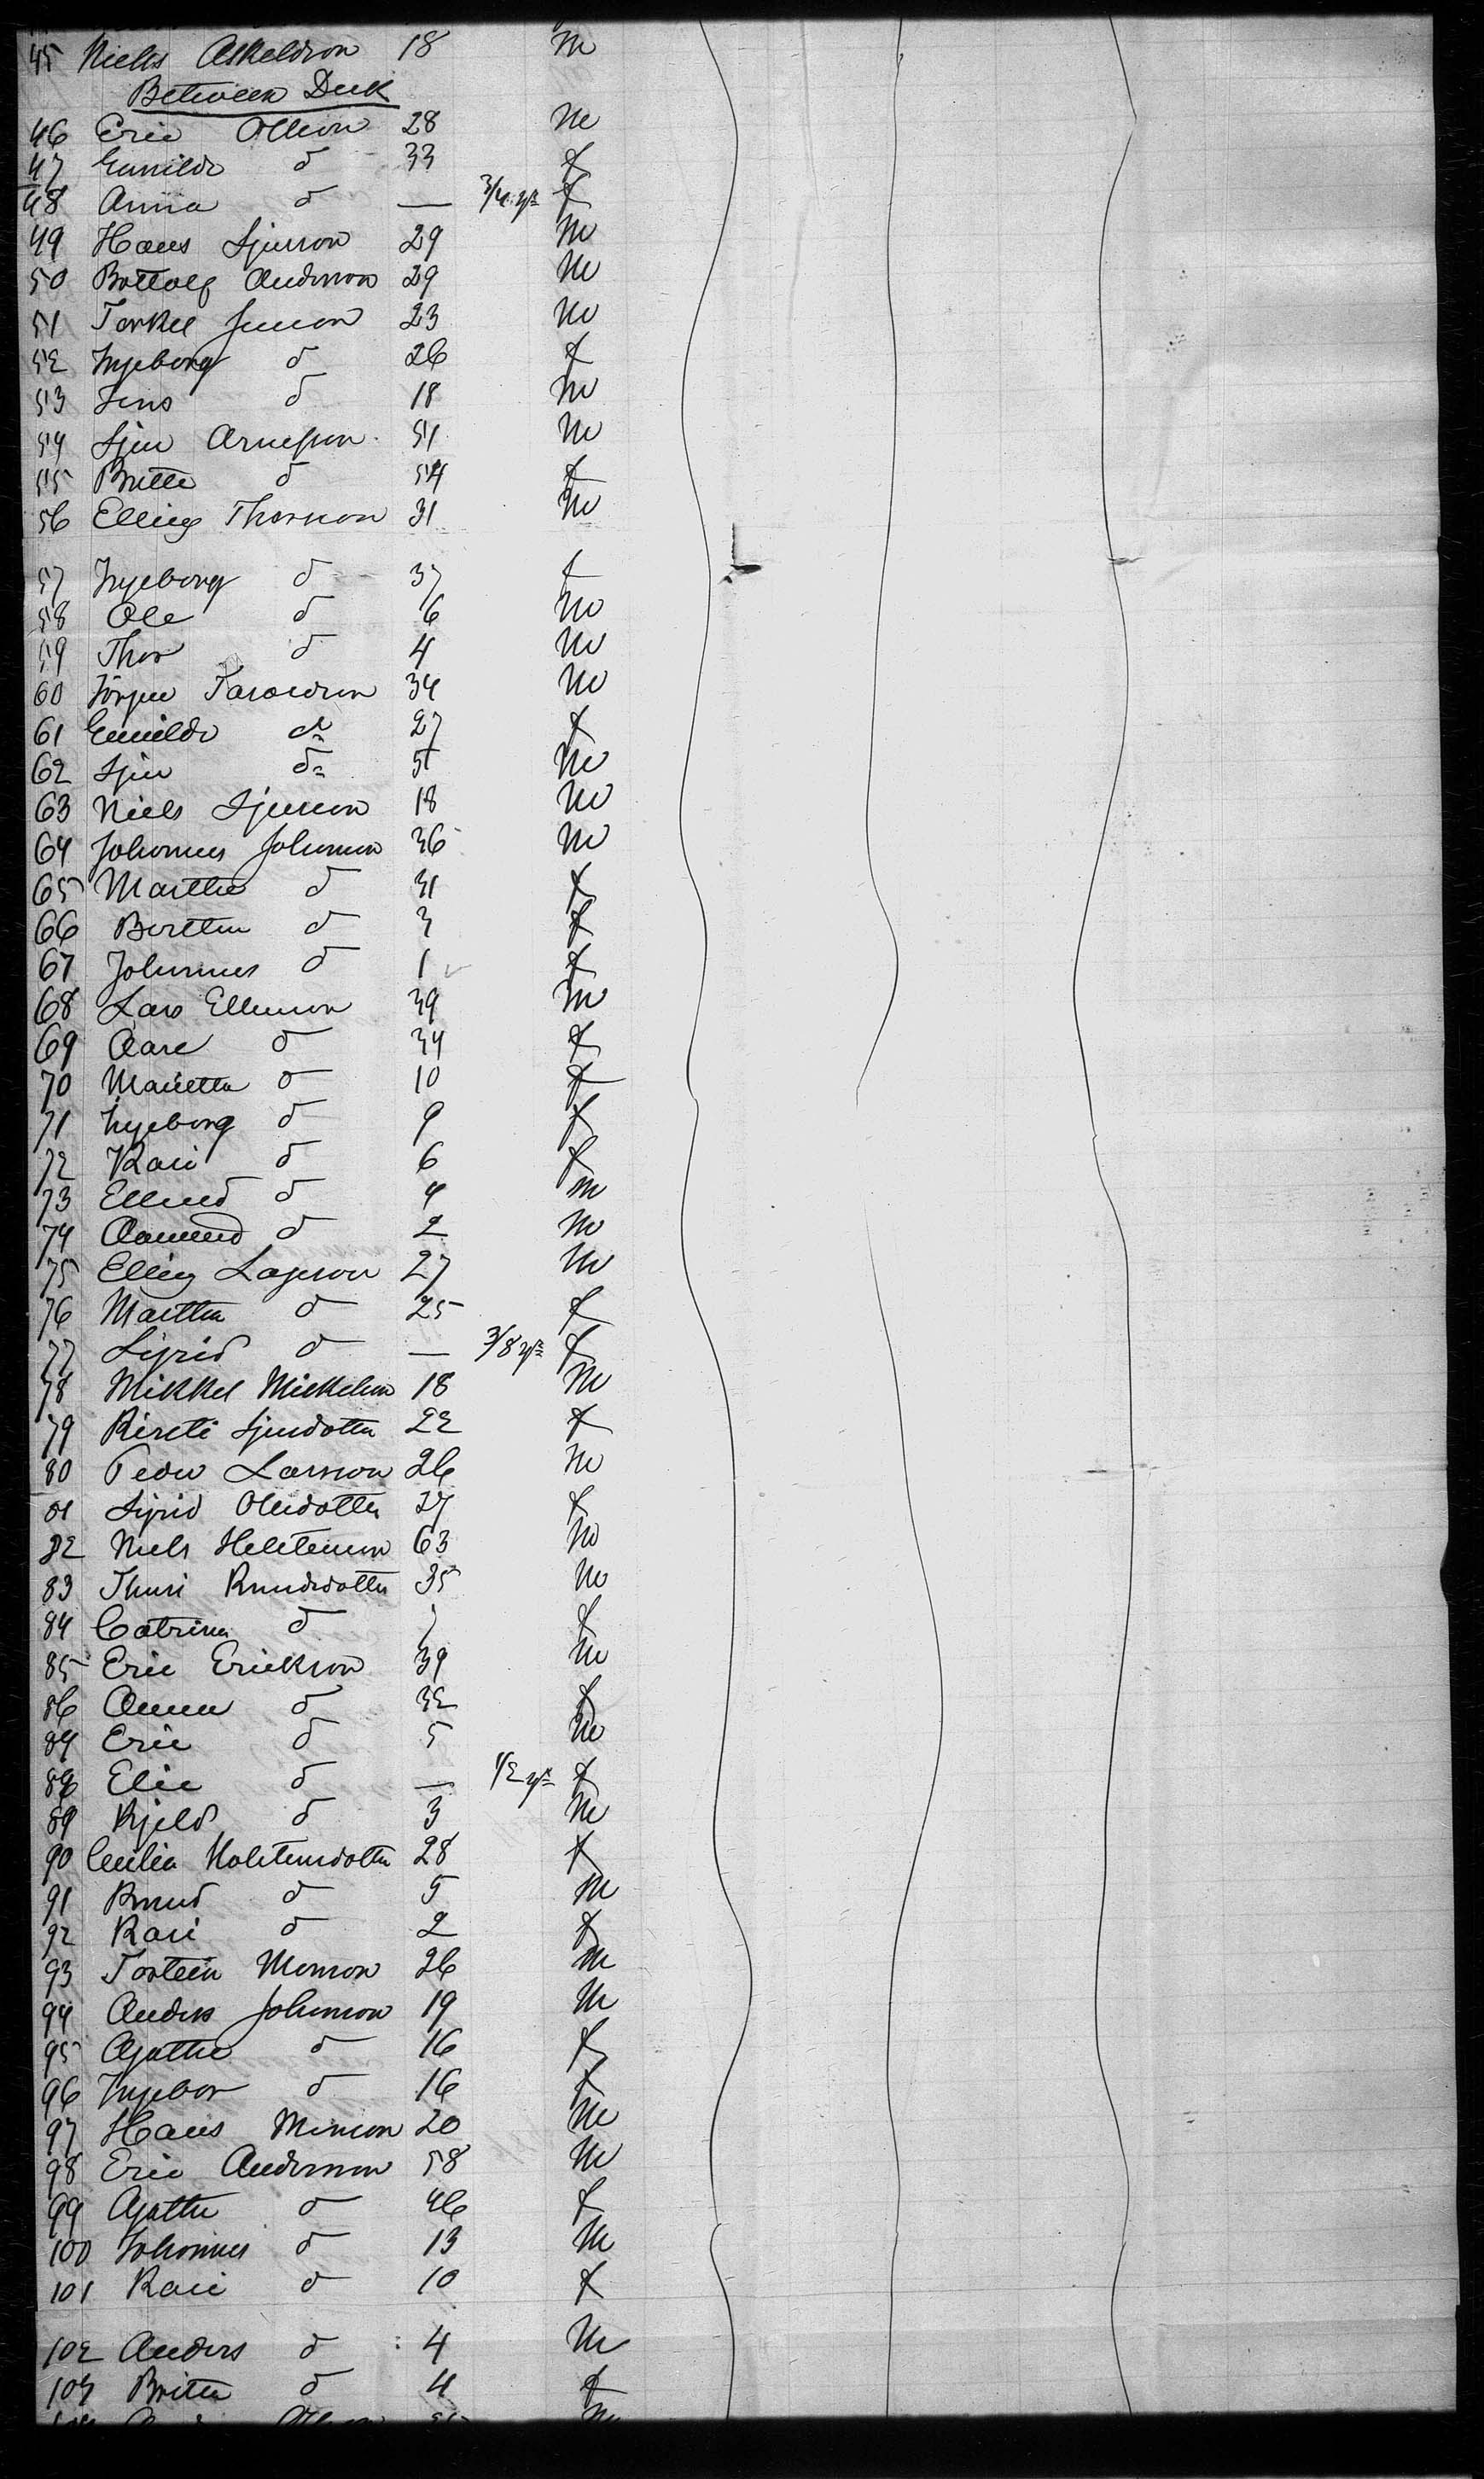 45 Niels Askeldson 18 m
Between Deck
46 Eric Olleson 28 m
47 Gunilde do 33 f
48 Anna do — 3/4 yrs f
49 Hans Sjurson 29 m
50 Bottolf Anderson 29 m
51 Torkel Jenson 23 m
52 Ingeborg do 26 f
53 Jens do 18 m
54 Sjur Arneson 51 m
55 Britte do 54 f
56 Elling Thorson 31 m
57 Ingeborg do 37 f
58 Ole do 6 m
59 Thor do 4 m
60 Jörgen 34 m
61 Gunilde do 27 f
62 Sjur do 5 m
63 Niels Sjurson 18 m
64 Johannes Johannson 36 m
65 Marthe do 31 f
66 Berttha do 3 f
67 Johannes do 1 f
68 Lars Ellenson 39 m
69 Aase do 34 f
70 Marietta do 10 f
71 Ingeborg do 9 f
72 Kari do 6 f
73 Ellend do 4 m
74 Aamund do 2 m
75 Elling Lageson 27 m
76 Martha do 25 f
77 Sigrid do — 3/8 yrs f
78 Mikkel Mickelson 18 m
79 Kirsti Sjursdotter 22 f
80 Peder Larsson 26 m
81 Sigrid Olesdotter 27 f
82 Niels 63 m
83 Thuri Knudsdotter 35 m
84 Catrina do 7 f
85 Eric Erickson 39 m
86 Anna do 32 f
87 Eric do 5 m
88 Elie do — 1/2 yrs f
89 Kjeld do 3 m
90 Cecilia Holstensdotter 28 f
91 Knud do 5 m
92 Kari do 2 f
93 Torstein Monson 26 m
94 Anders Johanson 19 m
95 Agathe do 16 f
96 Ingebor do 16 f
97 Hans Monson 20 m
98 Eric Anderson 58 m
99 Agathe do 46 f
100 Johannes do 13 m
101 Kari do 10 f
102 Anders do 4 m
103 Britta do 4 f